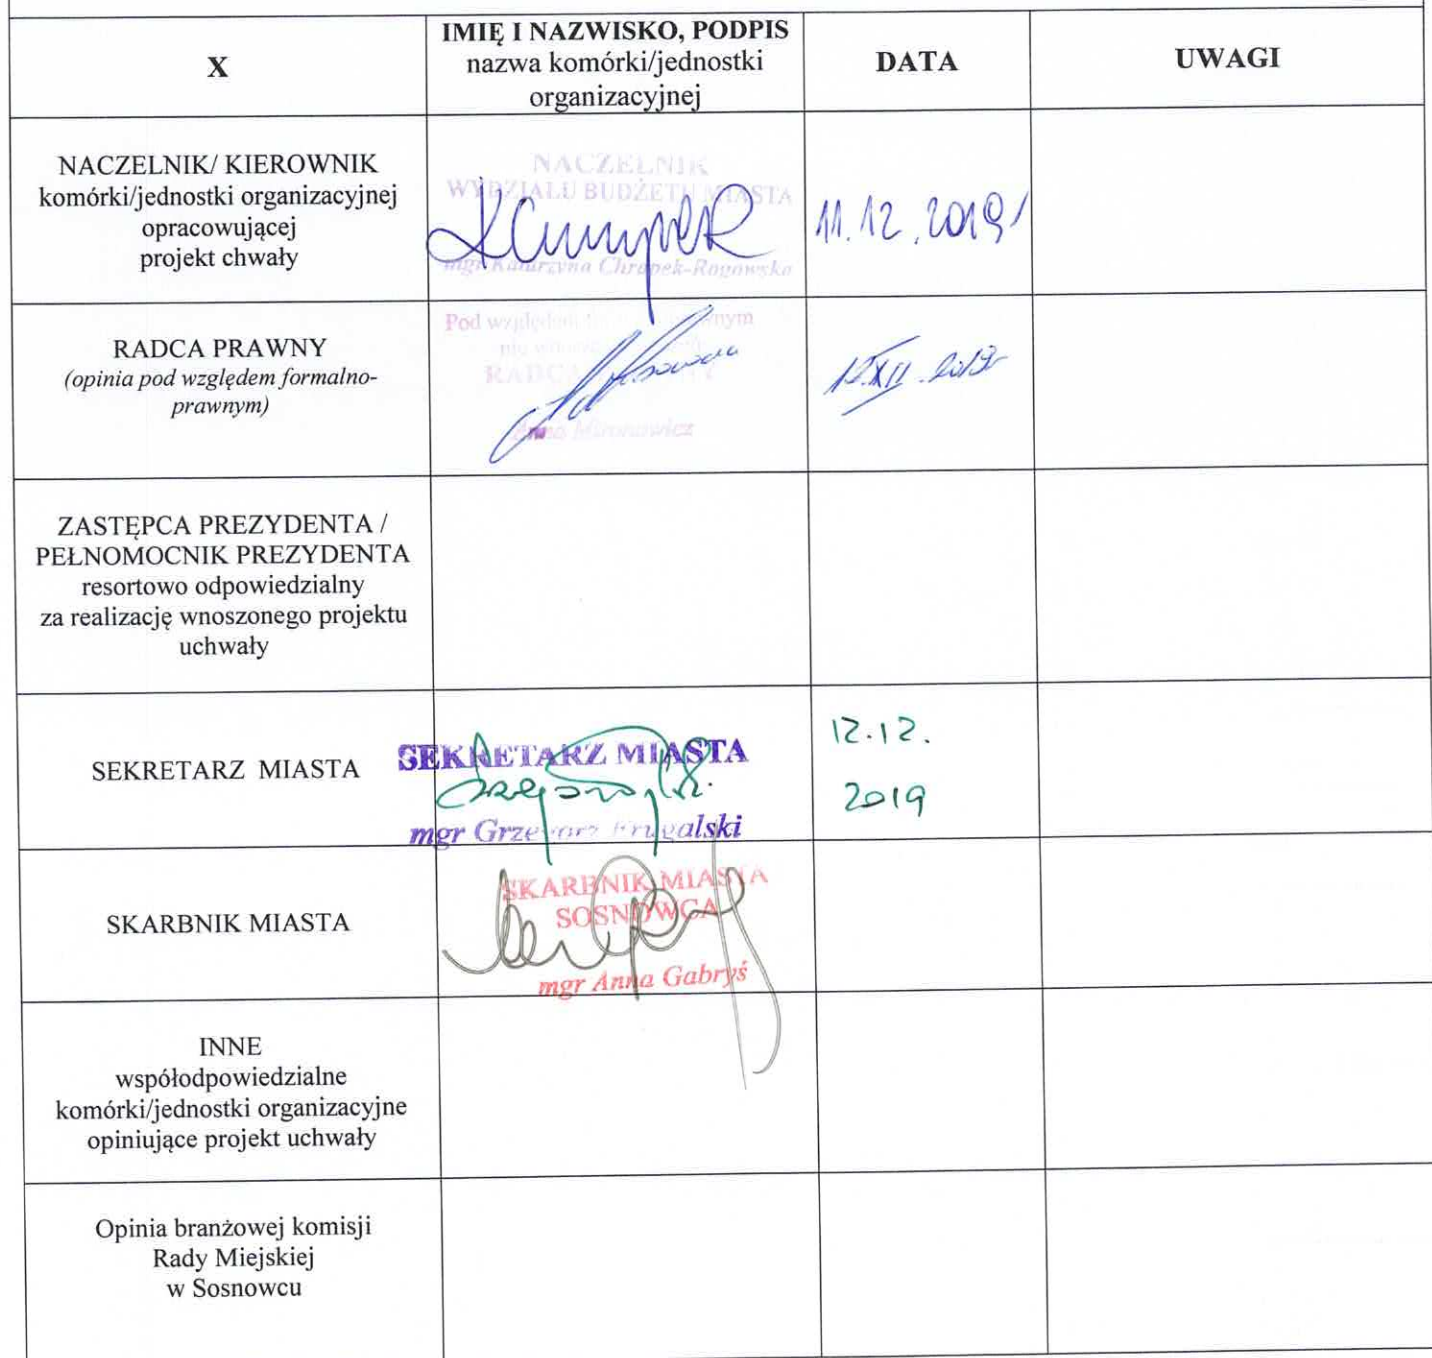 X
IMIĘ I NAZWISKO, PODPIS
nazwa komórki/jednostki
organizacyjnej
DATA
UWAGI
NACZELNIK/ KIEROWNIK
komórki/jednostki organizacyjnej
opracowującej
projekt chwały
NACZELNIK
WYDZIAŁU BUDŻETU MIASTA
mgr Katarzyna Chrapek-Rogowska
11.12.2019
RADCA PRAWNY
(opinia pod względem formalno-
prawnym)
Pod względem
RADCA PRAWNY
Anna Mironowicz
12.XII.2019
ZASTĘPCA PREZYDENTA /
PEŁNOMOCNIK PREZYDENTA
resortowo odpowiedzialny
za realizację wnoszonego projektu
uchwały
SEKRETARZ MIASTA
SEKRETARZ MIASTA
mgr Grzegorz
12.12.
2019
SKARBNIK MIASTA
SKARBNIK MIASTA
SOSNOWCA
mgr Anna Gabryś
INNE
współodpowiedzialne
komórki/jednostki organizacyjne
opiniujące projekt uchwały
Opinia branżowej komisji
Rady Miejskiej
w Sosnowcu